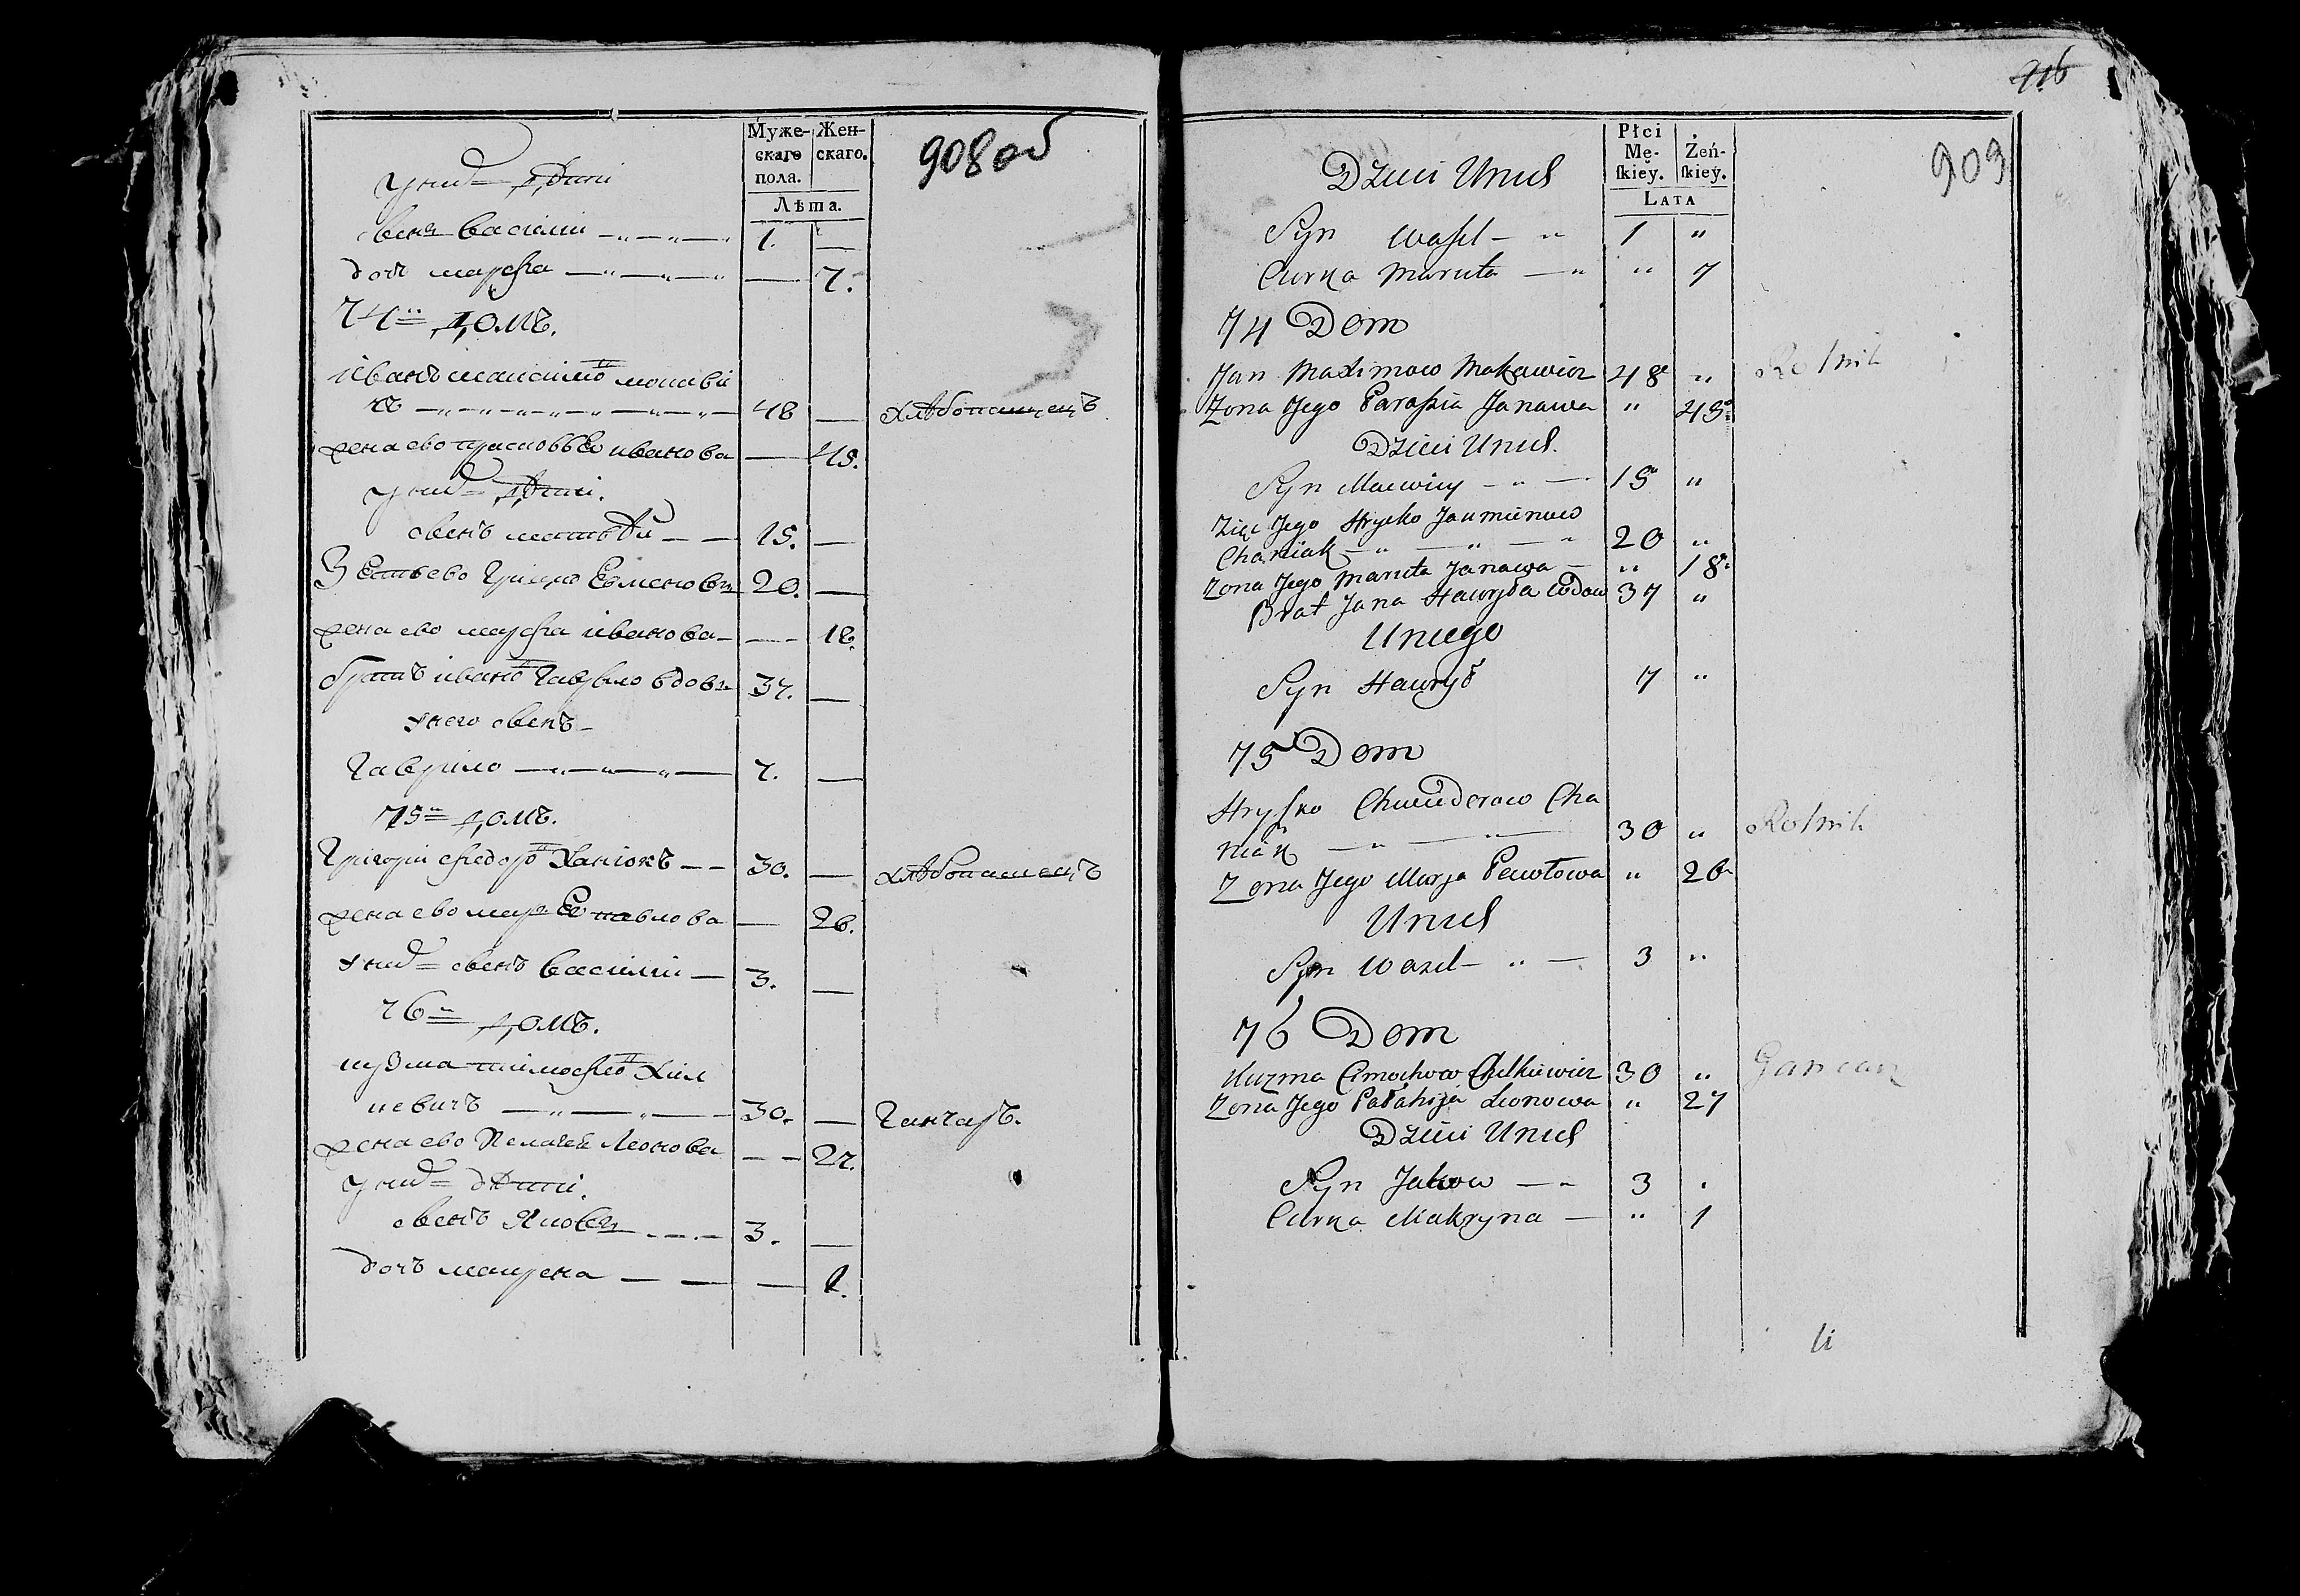 Муже-
скаго
пола.
Жен-
скаго.
Лѣта.
908 об
у них дѣти
сынъ василии 1. —
дочь марфа — 7.
74й домъ.
Иванъ максимов макави
чъ 48 — хлѣбопашецъ
жена ево прасковья иванова — 45.
у них дѣти.
сынъ матвѣй 15. —
Зеть ево грицко Еоменов 20. —
жена ево марфа иванова — 18.
братъ иванов гаврыло вдов 37. —
у него сынъ
гаврило 7. —
75й домъ.
григории федоров Ханюкъ 30. — хлѣбопашецъ
жена ево марья павлова — 26.
у них сынъ василии 3. —
76й домъ.
кузма тимофеов Хил
кевичъ 30. — ганчаръ.
жена ево Пелагея Леонова — 27.
у них дѣти.
сынъ Яков 3. —
дочь макрена — 1.
916
909
Płci
Mę-
ſkieÿ.
Żeń-
ſkieÿ.
LATA
Dzieci Unich
Syn Wasil 1 "
Curka Maruta " 7
74 Dom
Jan Maximow Makawicz 48 " Rolnik
Zona Jego Paraskia Janawa " 45
Dzieci Unich.
Syn Maćwiey 15 "
Zięć Jego Hrycko Jaumienow
Chaniak 20 "
Zona Jego Maruta Janawa " 18
Brat Jana Hawryła Wdow 37 "
Uniego
Syn Hawrył 7 "
75 Dom
Hryszko Chwiederow Cha
niak 30 " Rolnik
Zona Jego Marja Pawłowa " 26
Unich
Syn Wazil 3 "
76 Dom
Kuzma Cimochow Chilkiewicz 30 " Gancarz
Zona Jego Pałahija Leonowa " 27
Dzieci Unich
Syn Jakow 3 "
Curka Makryna " 1